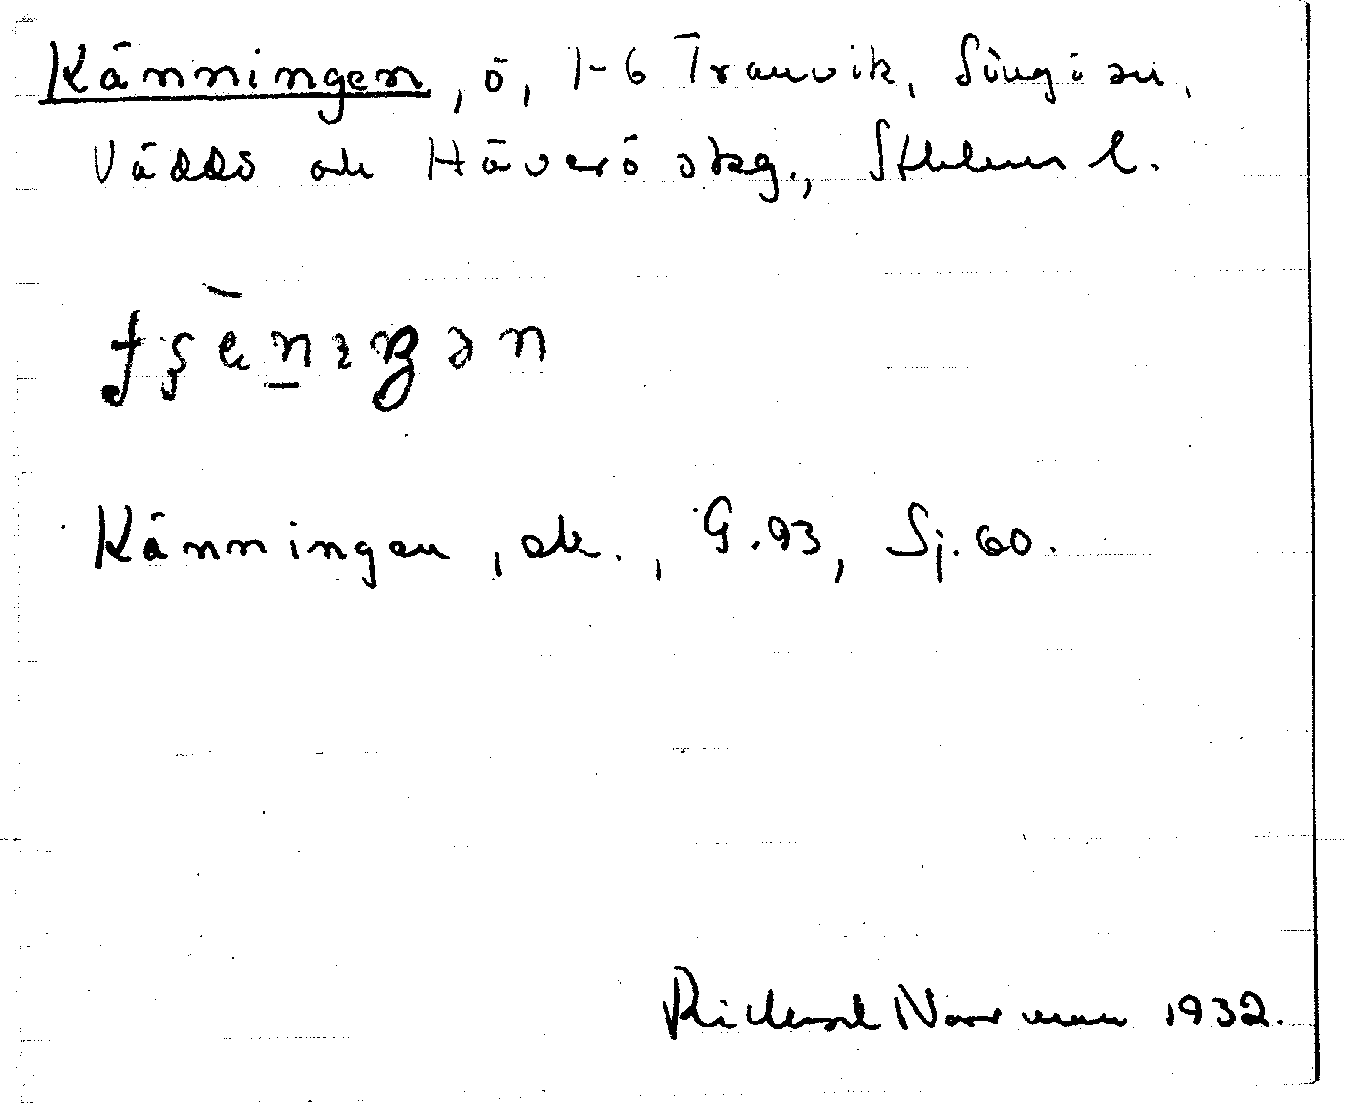 Känningen, ö, 1-6 Tranvik, Singö sn,
Väddö och Häverö skg., Sthlms l.
Känningen, ek., G.93, Sj.60.
Rickard Norrman 1932.